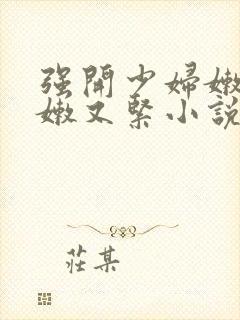 强開少婦嫩
嫩又緊小說
莊某